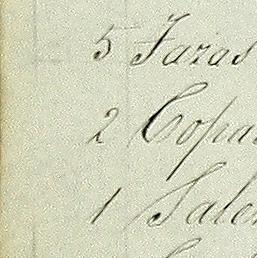 5 Jaras
2 Copa
1 Sale